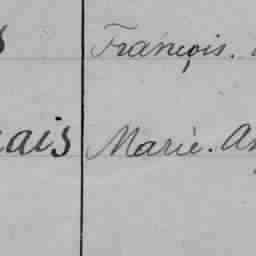 François.
ais Marie. An